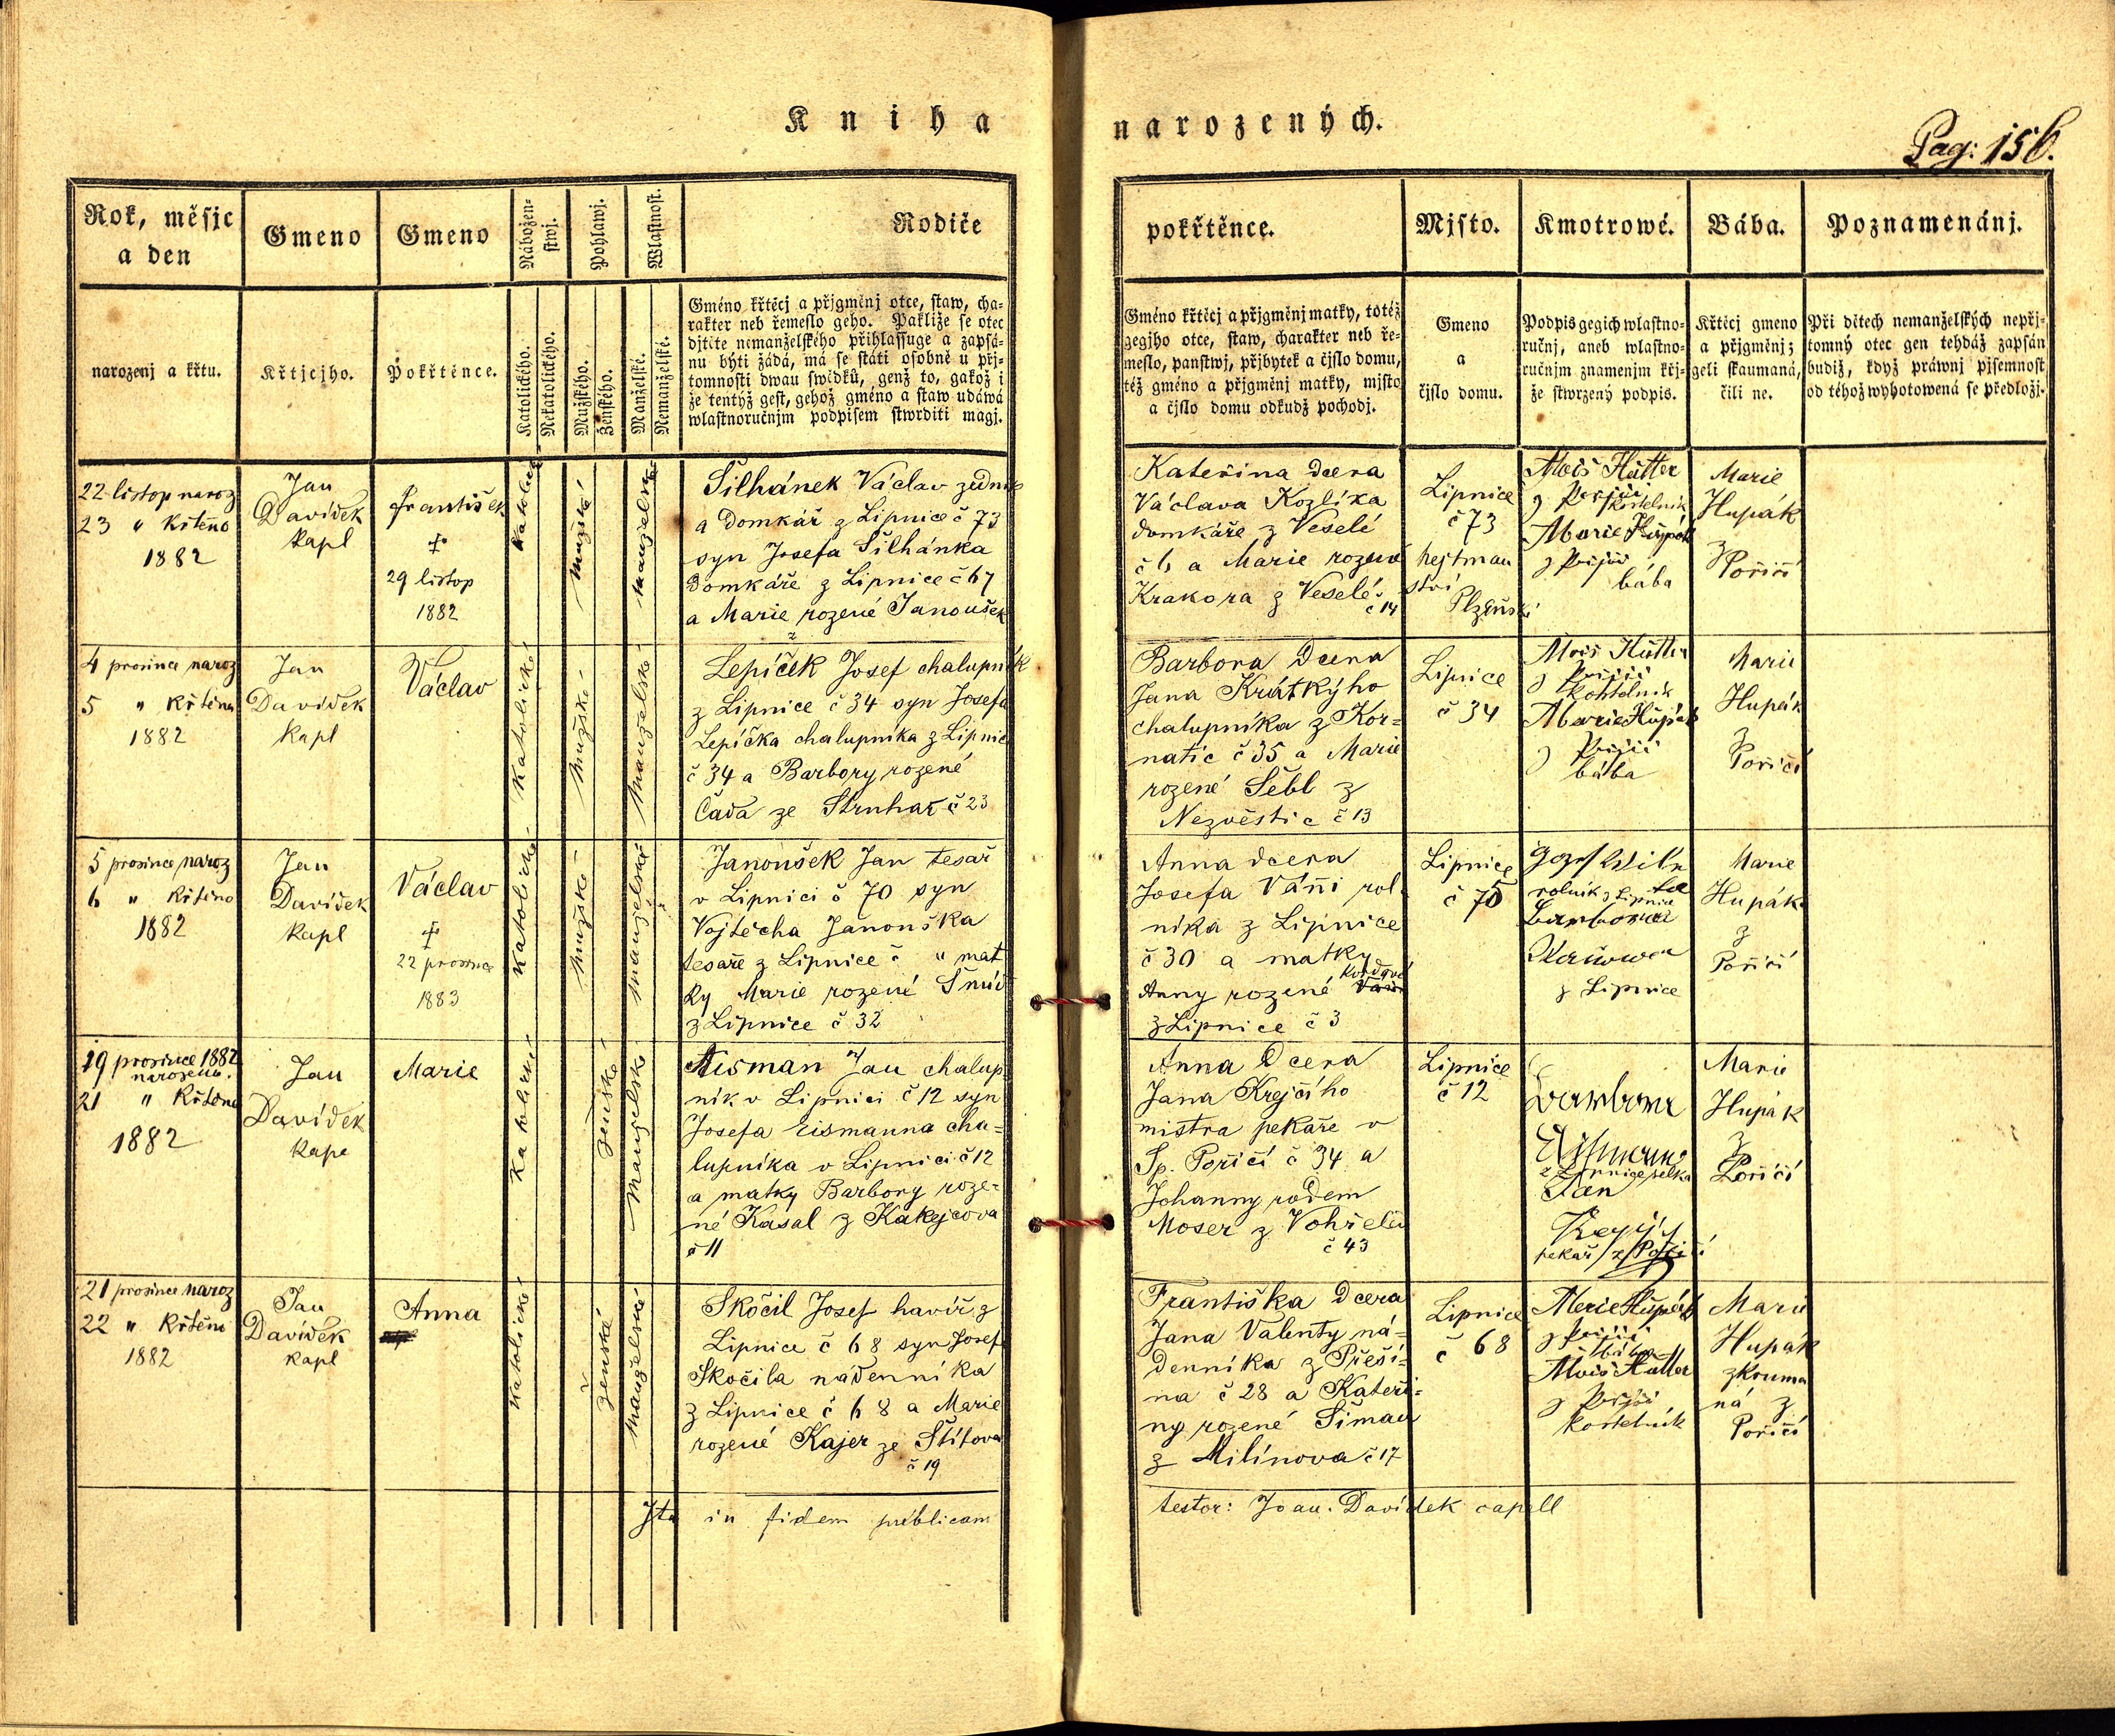 Kniha narozených.
Pag: 156.
Rok, měsjc
a den
Gmeno
Gmeno
Nábožen-
stwj.
Pohlawj.
Wlastnost.
Rodiče
pokřtěnce.
Mjsto.
Kmotrowé.
Bába.
Poznamenánj.
narozenj a křtu.
Křtjcjho.
Pokřtěnce.
Katolického.
Nekatolického.
Mužského.
Ženského.
Manželské.
Nemanželské.
Gméno křtěcj a přjgměnj otce, staw, cha-
rakter neb řemeslo geho. Pakliže se otec
djtěte nemanželského přihlassuge a zapsá-
nu býti žádá, má se státi osobně u přj-
tomnosti dwau swědků, genž to, gakož i
že tentýž gest, gehož gméno a staw udáwá
wlastnoručnjm podpisem stwrditi magj.
Gméno křtěcj a přjgměnj matky, totéž
gegjho otce, staw, charakter neb ře-
meslo, panstwj, přjbytek a čjslo domu,
též gméno a přjgměnj matky, mjsto
a čjslo domu odkudž pocházj.
Gmeno
a
čjslo domu.
Podpis gegich wlastno-
ručnj, aneb wlastno-
ručnjm znamenjm křj-
že stwrzený podpis.
Křtěcj gmeno
a přjgměnj;
geli skaumaná,
čili ne.
Při dětech nemanželských nepřj-
tomný otec gen tehdáž zapsán
budiž, když práwnj pjsemnost
od téhož wyhotowená se předložj.
22 listop naroz
23 " Křtěno
1882
Jan
Davídek
Kapl
František
†
29 listop
1882
Katolické
mužské
manželské
Šilhánek Václav zedník
a domkář z Lipnice č 73
syn Josefa Šilhánka
Domkáře z Lipnice č 67
a Marie rozené Janoušek
Kateřina dcera
Václava Kozlíka
domkáře z Veselé
č 6 a Marie rozené
Krakora z Veselé
č 14
Lipnice
č 73
hejtman
ství
Plzeňské
Alois Hütter
z Poříčí
kostelník
Marie Hupák
z Poříčí
bába
Marie
Hupák
z
Poříčí
4 prosince naroz
5 " Křtěna
1882
Jan
Davídek
Kapl
Václav
Katolické
mužské
manželské
Lepíček Josef chalupník
z Lipnice č 34 syn Josefa
Lepíčka chalupníka z Lipnic
č 34 a Barbory rozené
Čada ze Struhař č 23
Barbora Dcera
Jana Krátkýho
chalupníka z Kor=
natic č 35 a Marie
rozené Šebl z
Nezvěstic č 13
Lipnice
č 34
Alois Hütter
z Poříčí
kostelník
Marie Hupák
z Poříčí
bába
Marie
Hupák
z
Poříčí
5 prosince naroz
6 " Křtěno
1882
Jan
Davídek
Kapl
Václav
†
22 prosince
1883
Katolické
mužské
manželské
Janoušek Jan tesař
v Lipnici č 70 syn
Vojtěcha Janouška
tesaře z Lipnice č " mat
ky Marie rozené
z Lipnice č 32
Anna dcera
Josefa Váni rol
níka z Lipnice
č 30 a matky
Anny rozené
z Lipnice č 3
Lipnice
č 70
Jozef
rolník z Lipnice
Barbora
z Lipnice
Marie
Hupák
z
Poříčí
19 prosince 1882
narozena.
21 " Křtěna
1882
Jan
Davídek
Kapl
Marie
Katolické
ženské
manželské
Aisman Jan chalup
ník v Lipnici č 12 syn
Josefa Eismanna cha=
lupníka v Lipnici č 12
a matky Barbory roze=
né Kasal z Kakejcova
č 11
Anna Dcera
Jana Krejčího
mistra pekaře v
Sp. Poříčí č 34 a
Johanny rodem
Moser z
č 43
Lipnice
č 12
Barbora
Aismann
z Lipnice selka
Jan
Krejčí
pekař z Poříčí
Marie
Hupák
z
Poříčí
21 prosince naroz
22 " Křtěno
1882
Jan
Davídek
Kapl
Anna
Katolické
ženské
manželské
Skočil Josef havíř z
Lipnice č 68 syn Josef
Skočila nádenníka
z Lipnice č 68 a Marie
rozené Kajer ze Štítova
č 19
Františka Dcera
Jana Valenty ná=
denníka z Přeší=
na č 28 a Kateři=
ny rozené Šimau
z Milínova č 17
Lipnice
č 68
Marie Hupák
z Poříčí
bába
Alois Hütter
z Poříčí
kostelník
Marie
Hupák
zkouma
ná z
Poříčí
Ita in fidem publicam testor: Joan. Davídek capell